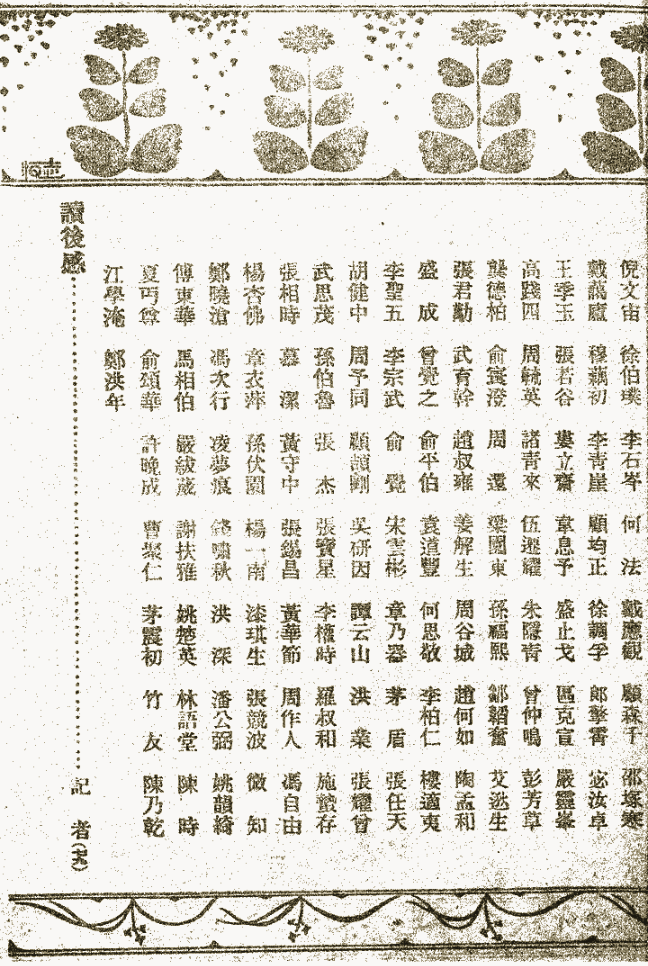 倪文宙 徐伯璞 李石岑 何法 戴應觀 顧森千 邵塚寒
戴藹廬 穆藕初 李青崖 顧均正 徐調孚 郎擎霄 宓汝卓
王季玉 張若谷 婁立齋 章息予 盛止戈 區克宣 嚴靈峯
高踐四 周毓英 諸青來 伍遷耀 朱隱青 曾仲鳴 彭芳草
龔德柏 俞寰澄 周還 梁園東 孫福熙 鄒韜奮 艾逖生
張君勱 武育幹 趙叔雍 姜解生 周谷城 趙何如 陶孟和
盛成 曾覺之 俞平伯 袁道豐 何思敬 李柏仁 樓適夷
李聖五 李宗武 俞覺 宋雲彬 章乃器 茅盾 張任天
胡健中 周予同 顧頡剛 吳研因 譚云山 洪業 張耀曾
武思茂 孫伯魯 張杰 張寶星 李權時 羅叔和 施蟄存
張相時 慕潔 黃守中 張鎰昌 黃華節 周作人 馮自由
楊杏佛 章衣萍 孫伏園 楊一南 漆琪生 張競波 微知
鄭曉滄 馮次行 凌夢痕 錢嘯秋 洪深 潘公弼 姚韻綺
傅東華 馬相伯 嚴紱葳 謝扶雅 姚楚英 林語堂 陳時
夏丏尊 俞頌華 許晚成 曹聚仁 茅震初 竹友 陳乃乾
江學淹 鄭洪年
讀後感……記者